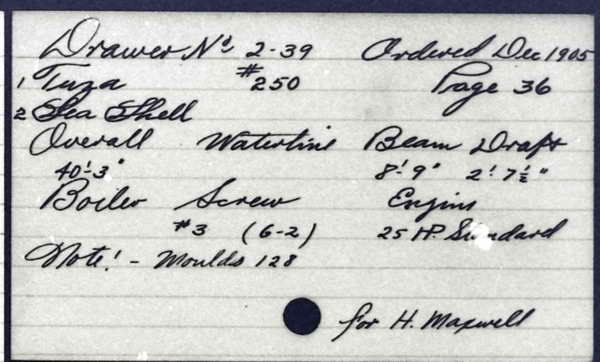 Drawer No 2-39 Ordered Dec 1905
1 Tuza #250 Page 36
2 Sea Shell
Overall Waterline Beam Draft
40'-3" 8'-9" 2'-7½"
Boiler Screw Engine
#3 (6-2) 25 HP. Standard
Note! - Moulds 128
for H. Maxwell